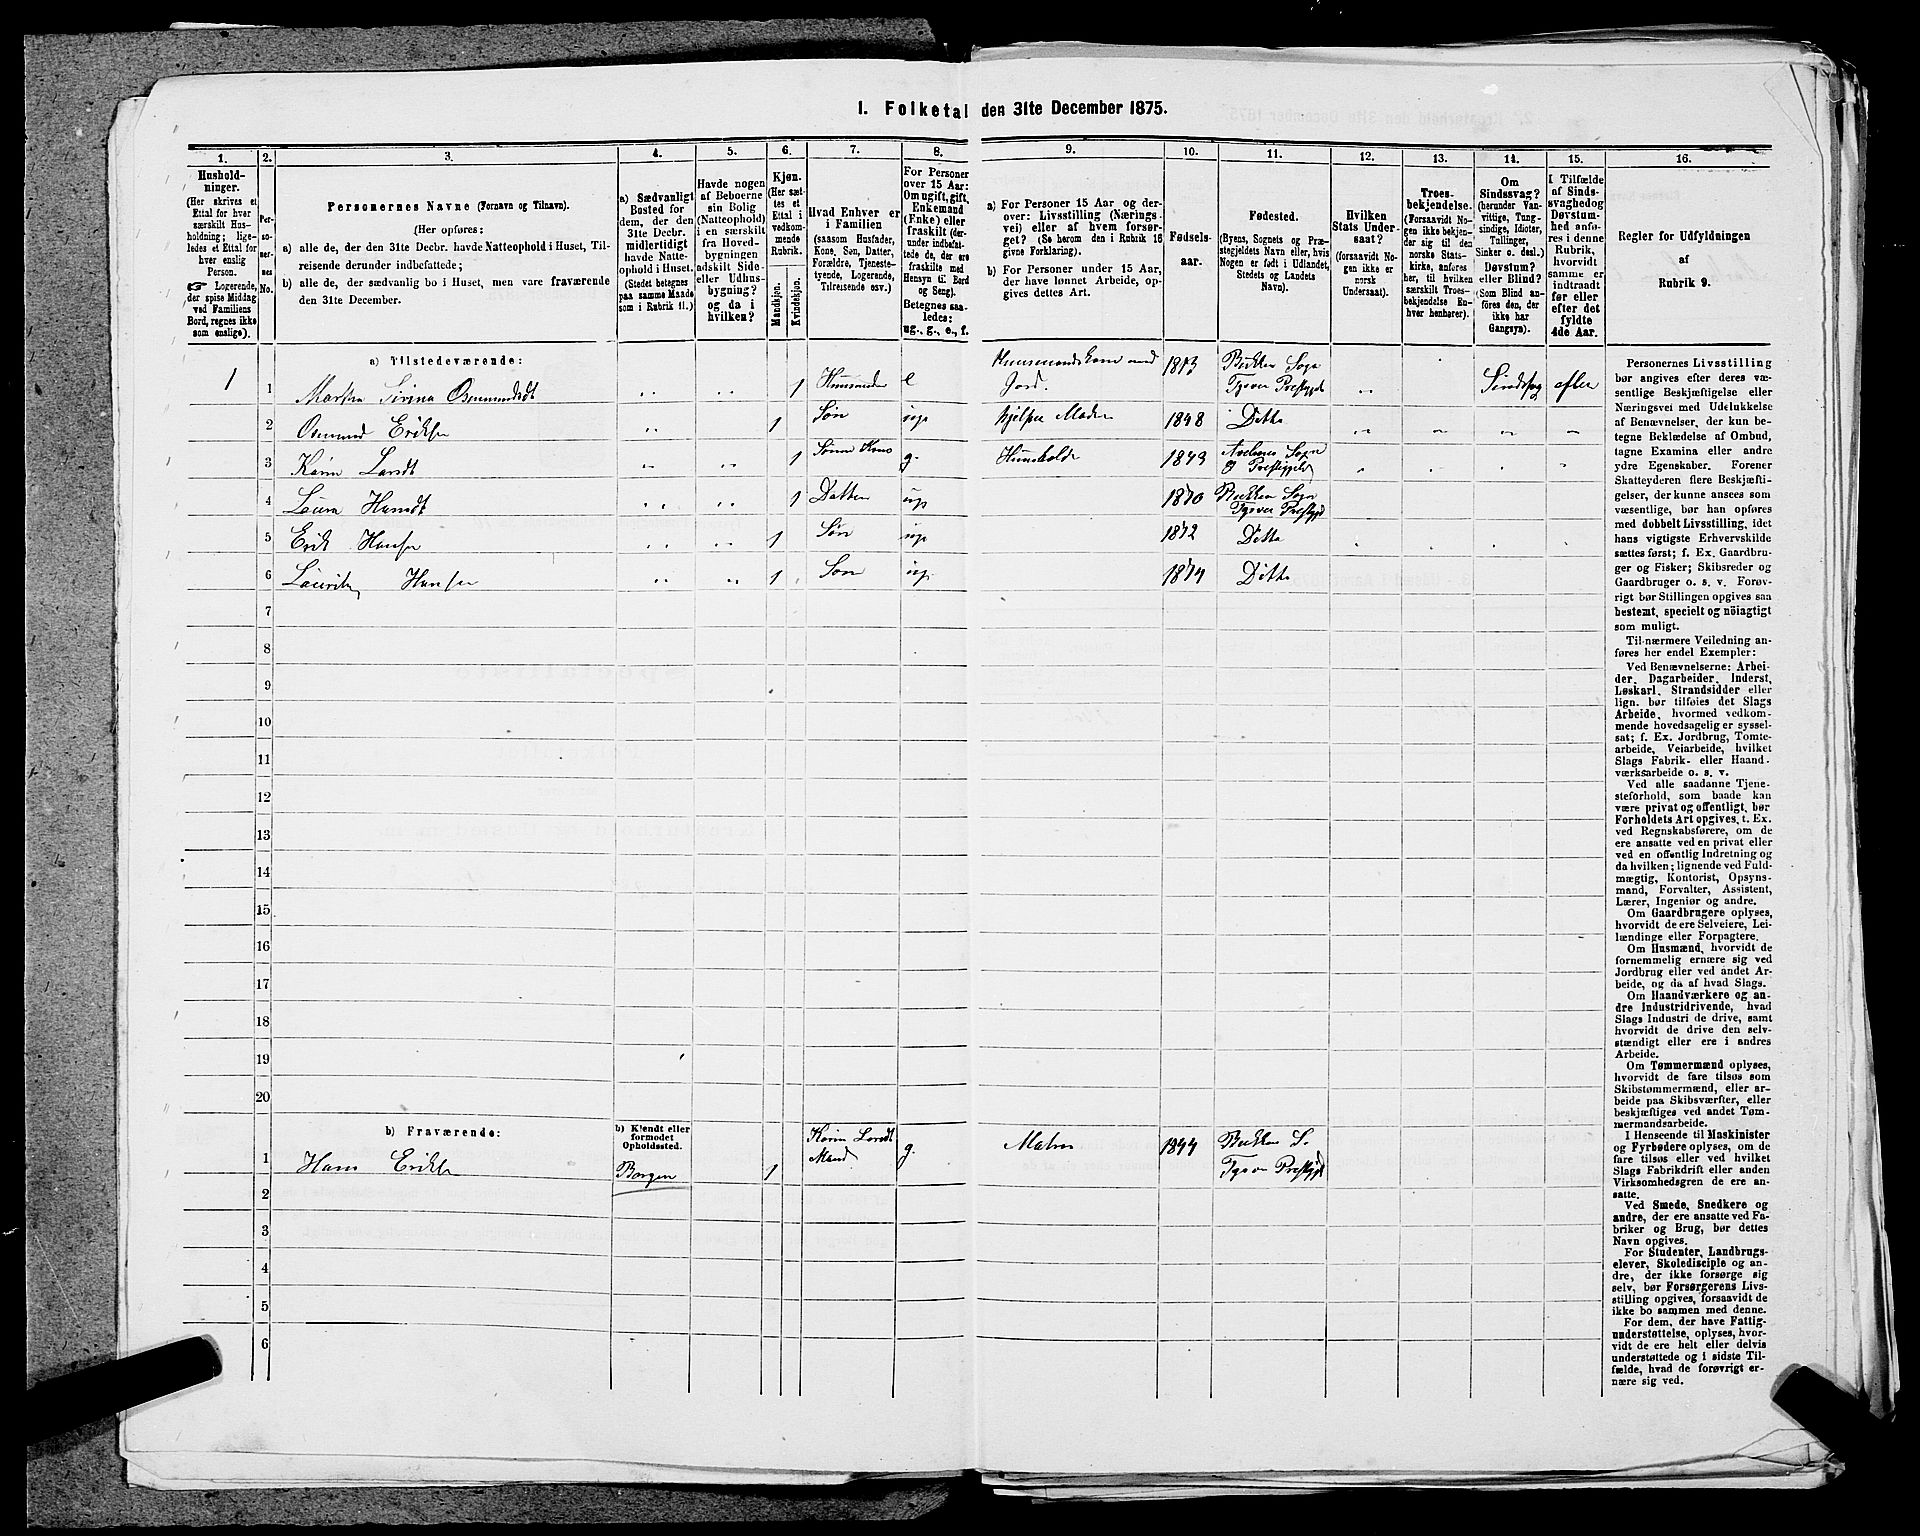 1. Folketal den 31te December 1875.
1.
2.
3.
4.
5.
6.
7.
8.
9.
10.
11.
12.
13.
14.
15.
16.
Hushold-
ninger.
(Her skrives et
Ettal for hver
særskilt Hus-
holdning; lige-
ledes et Ettal for
hver enslig
Person.
☞ Logerende,
der spise Middag
ved Familiens
Bord, regnes ikke
som enslige).
Per-
so-
ner-
nes
No.
Personernes Navne (Fornavn og Tilnavn).
(Her opføres:
a) alle de, der den 31te Decbr. havde Natteophold i Huset, Til-
reisende derunder indbefattede;
b) alle de, der sædvanlig bo i Huset, men vare fraværende
den 31te December.
a) Sædvanligt
Bosted for
dem, der den
31te Decbr.
midlertidigt
havde Natte-
ophold i Huset.
(Stedet betegnes
paa samme Maade
som i Rubrik 11.)
Havde nogen
af Beboerne
sin Bolig
(Natteophold)
i en særskilt
fra Hoved-
bygningen
adskilt Side-
eller Udhus-
bygning?
og da i
hvilken?
Kjøn.
(Her sæt-
tes et
Ettal i
vedkom-
mende
Rubrik.
Mandkjøn.
Kvindekjøn.
Hvad Enhver er
i Familien
(saasom Husfader,
Kone, Søn, Datter,
Forældre, Tjeneste-
tyende, Logerende,
Tilreisende osv.).
For Personer
over 15 Aar:
Om ugift, gift,
Enkemand
(Enke) eller
fraskilt (der-
under indbefat-
tede de, der ere
fraskilte med
Hensyn til Bord
og Seng).
Betegnes saa-
ledes:
ug., g., e., f.
a) For Personer 15 Aar og der-
over: Livsstilling (Nærings-
vei) eller af hvem forsør-
get? (Se herom den i Rubrik 16
givne Forklaring).
b) For Personer under 15 Aar,
der have lønnet Arbeide, op-
gives dettes Art.
Fødsels-
aar.
Fødested.
(Byens, Sognets og Præ-
stegjeldets Navn eller, hvis
Nogen er født i Udlandet,
Stedets og Landets
Navn).
Hvilken
Stats Under-
saat?
(forsaavidt No-
gen ikke er
norsk
Undersaat).
Troes-
bekjendelse.
(Forsaavidt No-
gen ikke bekjen-
der sig til den
norske Stats-
kirke, anføres
her, til hvilken
særskilt Troes-
bekjendelse En-
hver henhører).
Om
Sindssvag?
(herunder Van-
vittige, Tung-
sindige, Idioter,
Tullinger,
Sinker o. desl.)
Døvstum?
eller Blind?
(Som Blind an-
føres den, der
ikke har
Gangsyn).
I Tilfælde
af Sinds-
svaghed og
Døvstum-
hed anfø-
res i denne
Rubrik,
hvorvidt
samme er
indtraadt
før eller
efter det
fyldte
4de Aar.
Regler for Udfyldningen
af
Rubrik 9.
a) Tilstedeværende:
1 1 Martha Sirina Osmundsdt 1 e Huusmandskone med Jord. 1813 Bukken Sogn Tysvær Prestgjd efter
2 Osmund Eriksen 1 Søn ug. hjelper Moder 1848 Ditto
3 Karin Larsdt 1 Sønns Kone g. Huusholder 1843 Sogn & Prestgjeld
4 Laura Hansdt 1 Datter ug. 1870 Bukken Sogn Tysvær Prestgjd
5 Erik Hansen 1 Søn ug. 1872 Ditto
6 Hansen 1 Søn ug. 1874 Ditto
7
8
9
10
11
12
13
14
15
16
17
18
19
20
b) Fraværende:
b) Kjendt eller
formodet
Opholdssted.
1 Hans Eriksen Bergen 1 Karin Larsdt Mand g. Matros 1844 Bukken S. Tysvær Prestgjd
2
3
4
5
6
Personernes Livsstilling
bør angives efter deres væ-
sentlige Beskjæftigelse eller
Næringsvei med Udelukkelse
af Benævnelser, der kun be-
tegne Beklædelse af Ombud,
tagne Examina eller andre
ydre Egenskaber. Forener
Skatteyderen flere Beskjæfti-
gelser, der kunne ansees som
væsentlige, bør han opføres
med dobbelt Livsstilling, idet
hans vigtigste Erhvervskilde
sættes først; f. Ex. Gaardbru-
ger og Fisker; Skibsreder og
Gaardbruger o. s. v. Forøv-
rigt bør Stillingen opgives saa
bestemt, specielt og nöiagtigt
som muligt.
Til nærmere Veiledning an-
føres her endel Exempler:
Ved Benævnelserne: Arbei-
der, Dagarbeider, Inderst,
Løskarl, Strandsidder eller
lign. bør tilføies det Slags
Arbeide, hvormed vedkom-
mende hovedsagelig er syssel-
sat; f. Ex. Jordbrug, Tomte-
arbeide, Veiarbeide, hvilket
Slags Fabrik- eller Haand-
værksarbeide o. s. v.
Ved alle saadanne Tjene-
steforhold, som baade kan
være privat og offentligt, bør
Forholdets Art opgives, t. Ex.
ved Regnskabsførere, om de
ere ansatte ved en privat eller
ved en offentlig Indretning og
da hvilken; lignende ved Fuld-
mægtig, Kontorist, Opsyns-
mand, Forvalter, Assistent,
Lærer, Ingeniør og andre.
Om Gaardbrugere oplyses,
hvorvidt de ere Selveiere, Lei-
lændinge eller Forpagtere.
Om Husmænd, hvorvidt de
fornemmelig ernære sig ved
Jordbrug eller ved andet Ar-
beide, og da af hvad Slags.
Om Haandværkere og an-
dre Industridrivende, hvad
Slags Industri de drive, samt
hvorvidt de drive den selv-
stændigt eller ere i andres
Arbeide.
Om Tømmermænd oplyses,
hvorvidt de fare tilsøs som
Skibstømmermænd, eller ar-
beide paa Skibsværfter, eller
beskjæftiges ved andet Tøm-
mermandsarbeide.
I Henseende til Maskinister
og Fyrbødere oplyses, om de
fare tilsøs eller ved hvilket
Slags Fabrikdrift eller anden
Virksomhedsgren de ere an-
satte.
Ved Smede, Snedkere og
andre, der ere ansatte ved Fa-
briker og Brug, bør dettes
Navn opgives.
For Studenter, Landbrugs-
elever, Skoledisciple og an-
dre, der ikke forsørge sig
selv, bør Forsørgerens Livs-
stilling opgives, forsaavidt de
ikke bo sammen med denne.
For dem, der have Fattig-
understøttelse, oplyses, hvor-
vidt de ere helt eller delvis
understøttede og i sidste Til-
fælde, hvad de forøvrigt er-
nære sig ved.